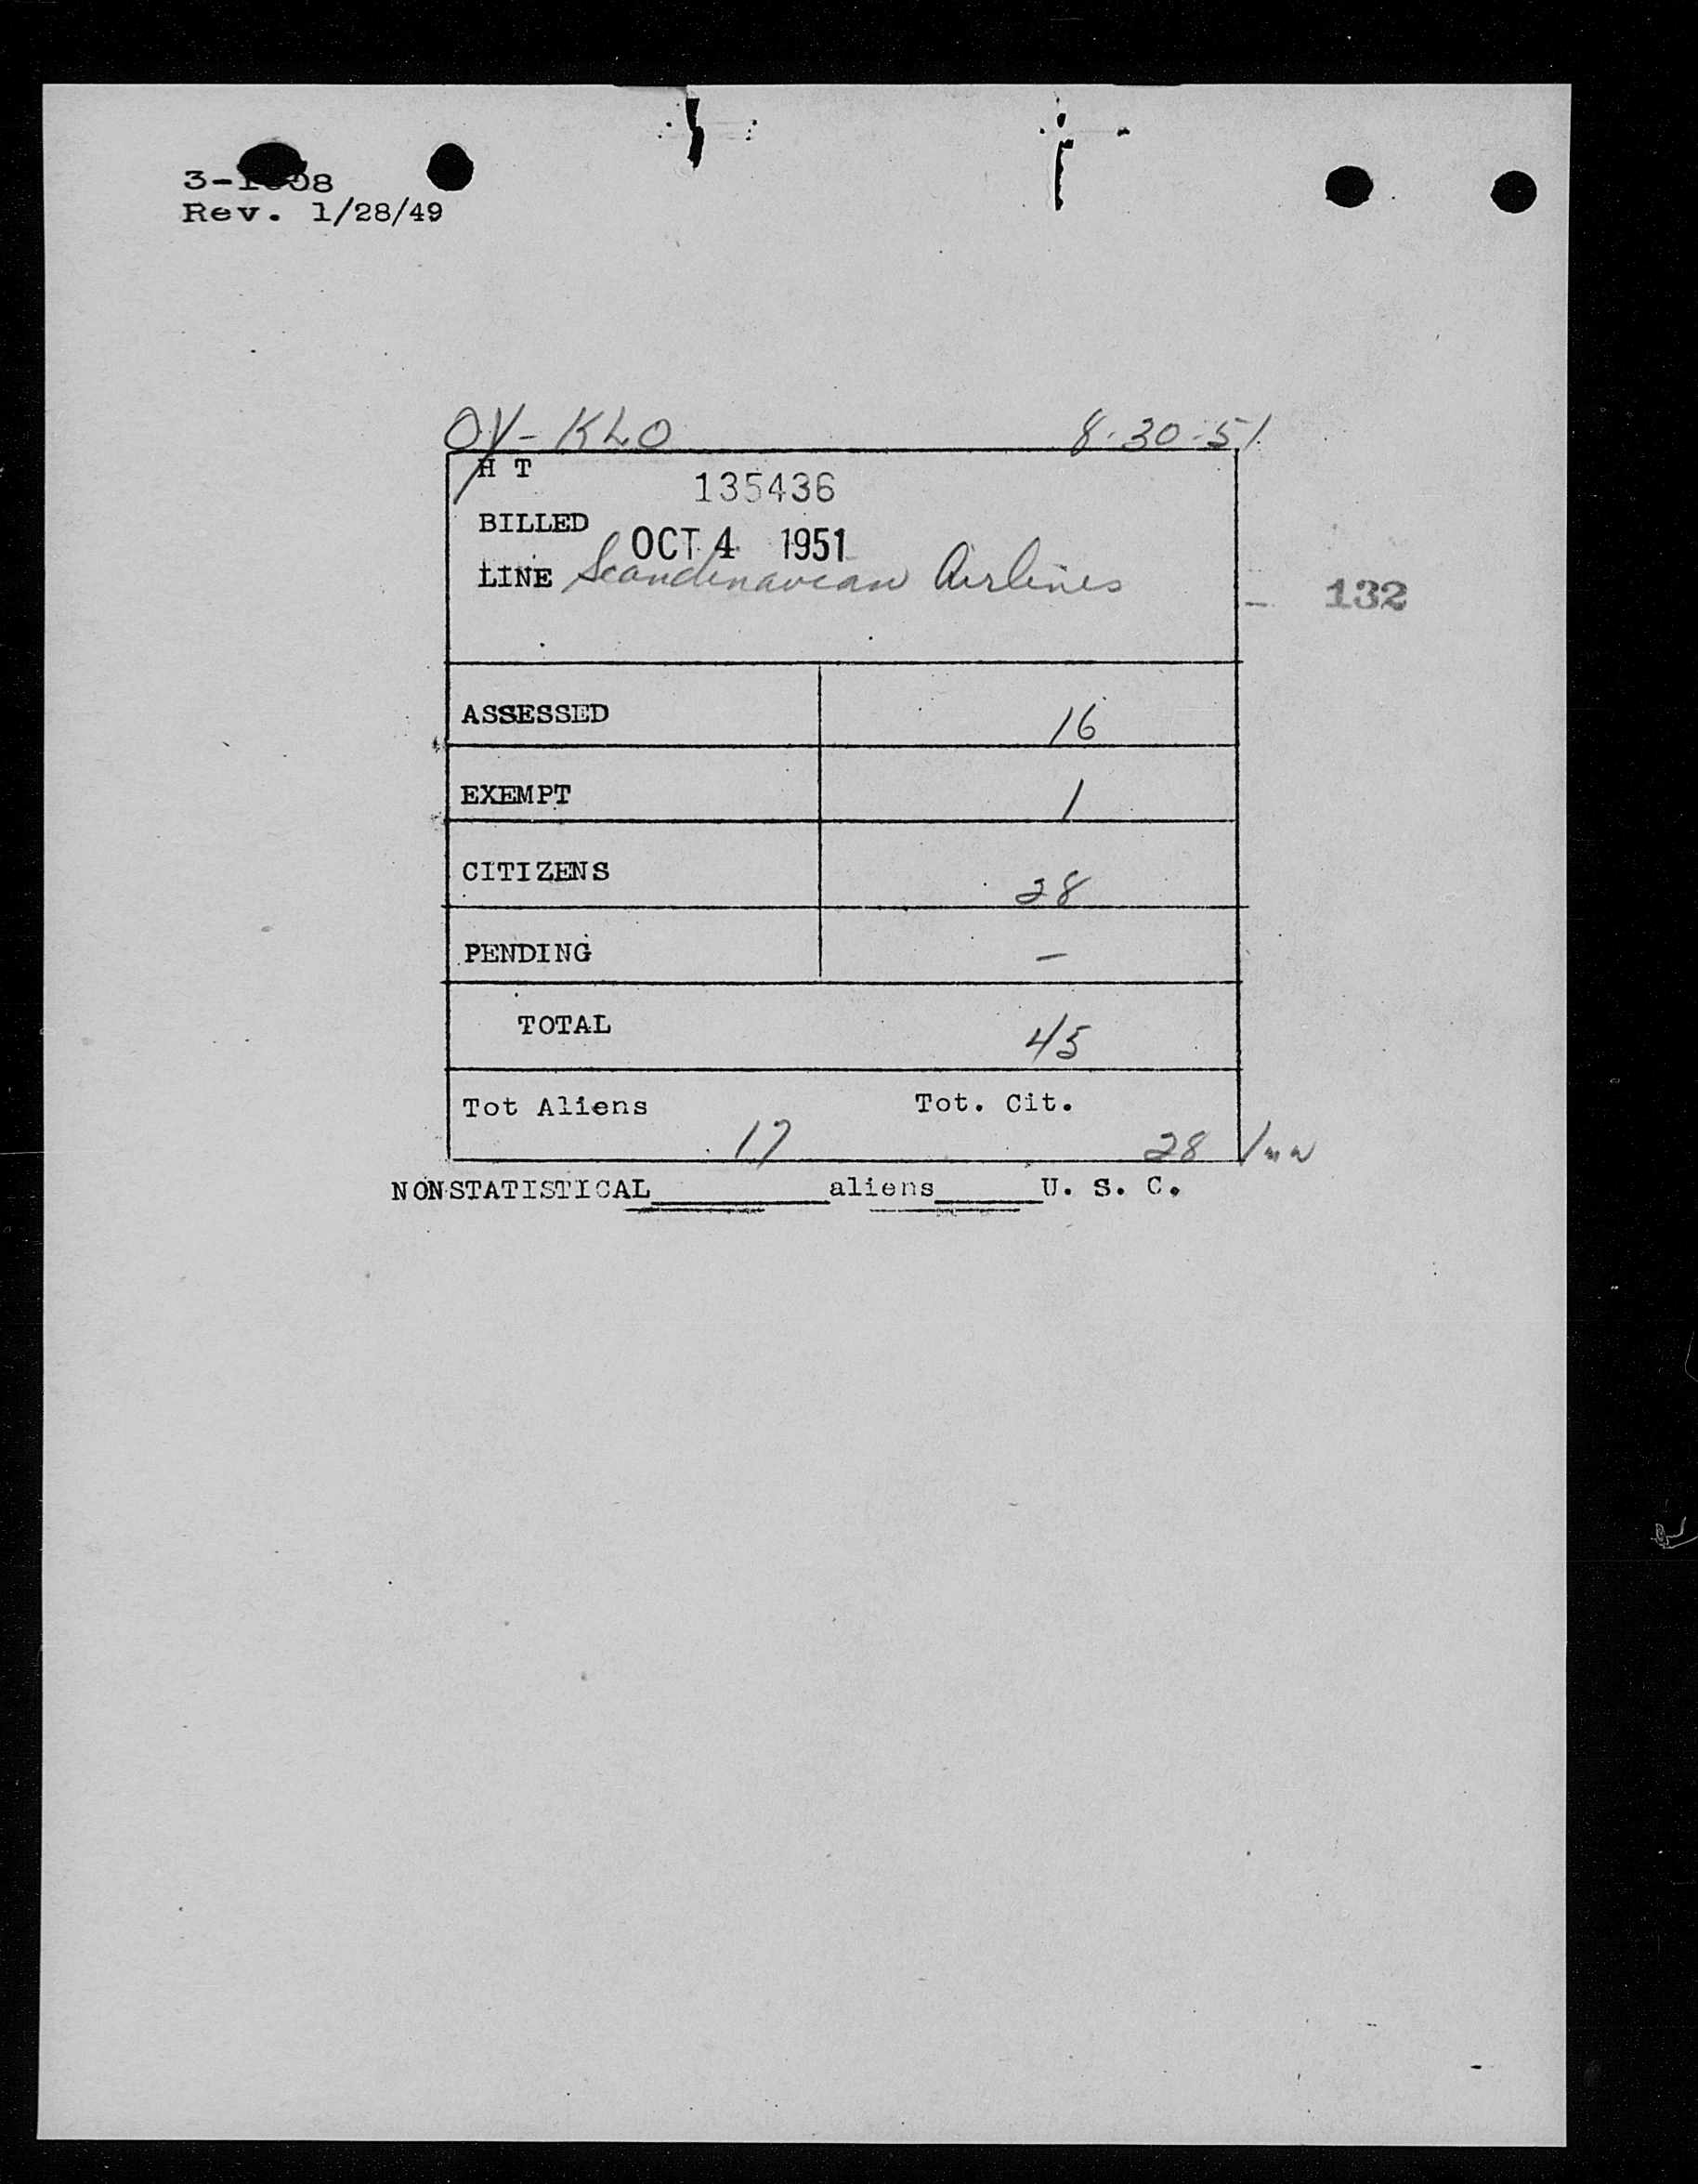 Rev. 1/28/49
OY-KLO 8-30-51
H T
135436
BILLED OCT 4 1951
LINE Scandinavian Airlines
132
ASSESSED 16
EXEMPT 1
CITIZENS 28
PENDING —
TOTAL 45
Tot Aliens 17 Tot. Cit. 28
NONSTATISTICAL__________aliens______U. S. C.